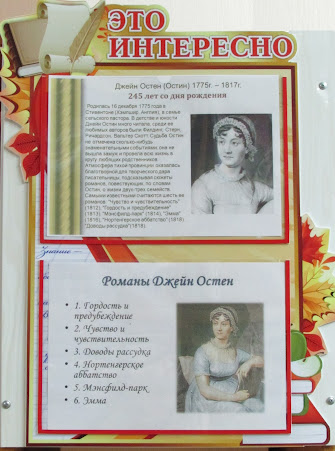 ЭТО
ИНТЕРЕСНО
Джейн Остен (Остин) 1775г. – 1817г.
245 лет со дня рождения
Родилась 16 декабря 1775 года в
Стивентоне (Хэмпшир, Англия), в семье
сельского пастора. В детстве и юности
Джейн Остен много читала, среди ее
любимых авторов были Филдинг, Стерн,
Ричардсон, Вальтер Скотт. Судьба Остен
не отмечена сколько-нибудь
знаменательными событиями, она не
вышла замуж и провела всю жизнь в
кругу любящих родственников.
Атмосфера тихой провинции, оказалась
благотворной для творческого дара
писательницы, подсказывая сюжеты
романов, повествующих, по словам
Остен, о жизни двух-трех семейств.
Самыми известными считаются шесть ее
романов: "Чувство и чувствительность"
(1812), "Гордость и предубеждение"
(1813), "Мэнсфилд-парк" (1814), "Эмма"
(1816), "Нортенгерское аббатство" (1818)
"Доводы рассудка" (1818)
Знание –
Романы Джейн Остен
• 1. Гордость и
предубеждение
• 2. Чувство и
чувствительность
• 3. Доводы рассудка
• 4. Нортенгерское
аббатство
• 5. Мэнсфилд-парк
• 6. Эмма